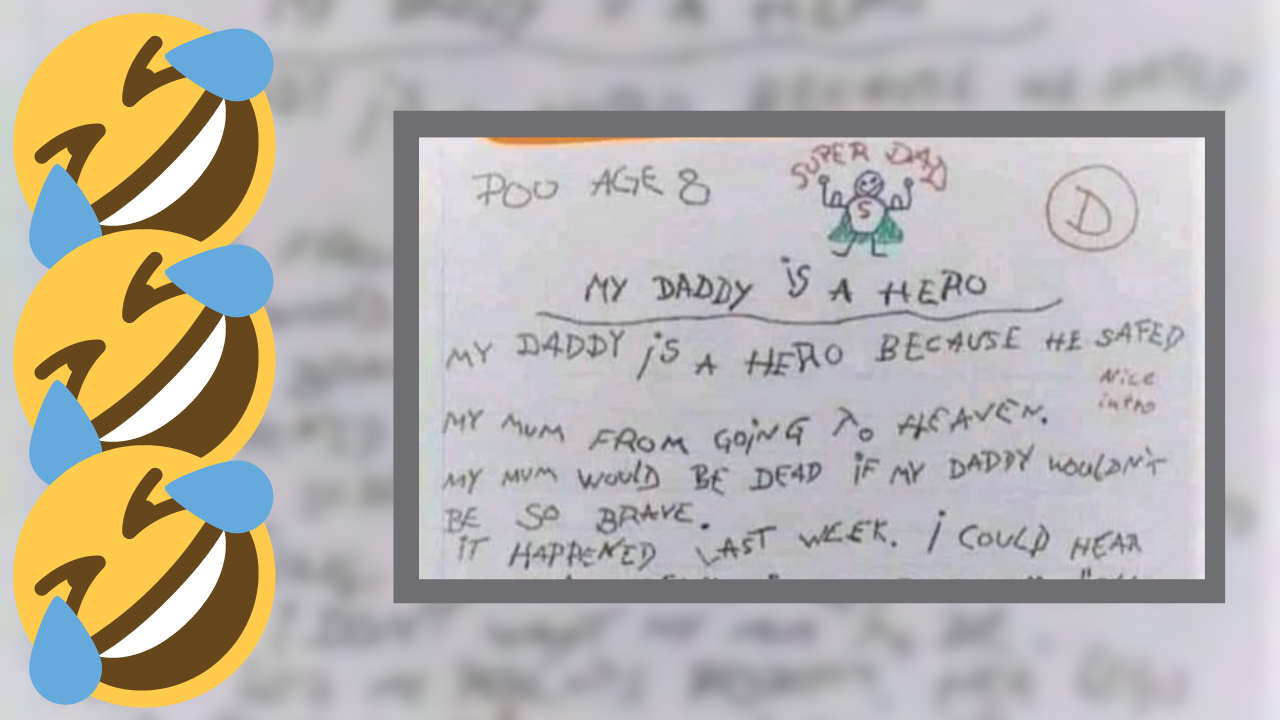 SUPER DAD
POO AGE 8
D
S
MY DADDY iS A HERO
MY DADDY iS A HERO BECAUSE HE SAFED
Nice
intro
MY MUM FROM GOiNG To HEAVEN.
MY MUM WOULD BE DEAD iF MY DADDY WOULDN'T
BE SO BRAVE.
iT HAPPENED LAST WEEK. i COULD HEAR